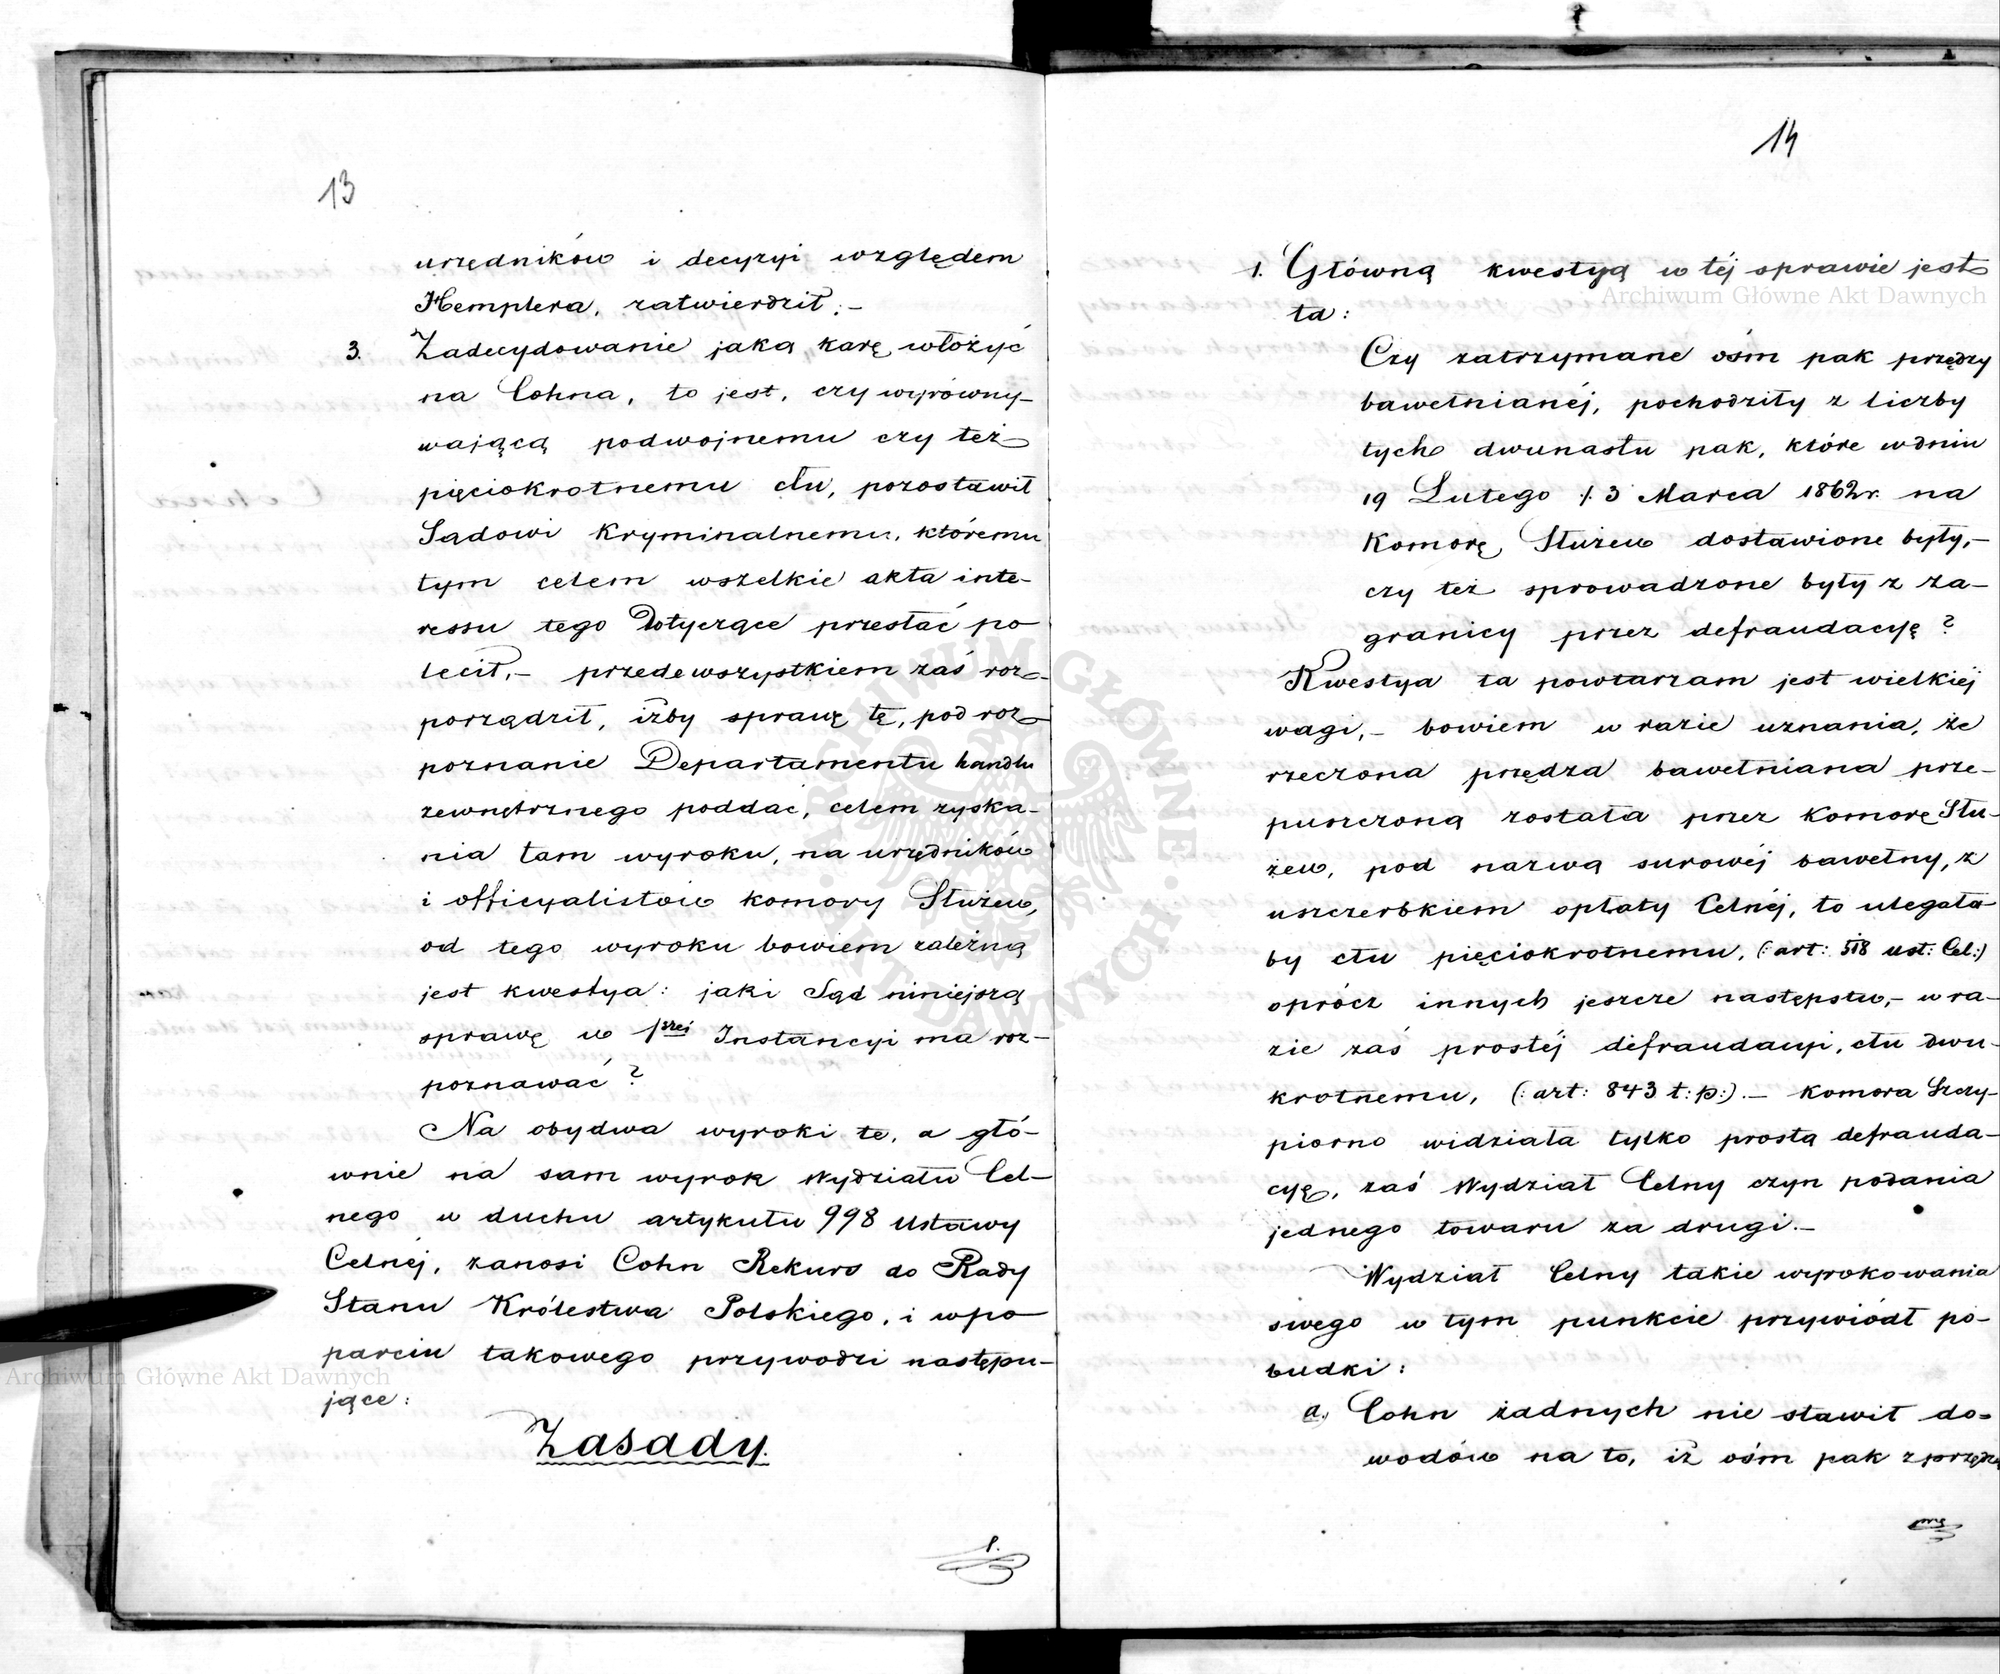 13
urzędników i decyzyi względem
Hemplera, zatwierdził;—
3. Zadecydowanie jaką karę włożyć
na Cohna, to jest, czy wyrówny-
wającą podwojnemu czy też
pięciokrotnemu cłu, pozostawił
Sądowi Kryminalnemu, któremu
tym celem wszelkie akta inte-
ressu tego dotyczące przesłać po
lecił,— przedewszystkiem zaś roz-
porządził, iżby sprawę tę, pod roz-
poznanie Departamentu handlu
zewnętrznego poddać, celem zyska-
nia tam wyroku, na urzędników
i officyalistów komory Służew,
od tego wyroku bowiem zależną
jest kwestya: jaki Sąd niniejszą
sprawę w 1szej Instancyi ma roz-
poznawać?
Na obydwa wyroki te, a głó-
wnie na sam wyrok Wydziału Cel-
nego w duchu artykułu 998 Ustawy
Celnéj, zanosi Cohn Rekurs do Rady
Stanu Królestwa Polskiego, i wpo
parciu takowego przywodzi następu-
jące:
Zasady.
1.
14
1. Główną kwestyą w téj sprawie jest
ta:
Czy zatrzymane ośm pak przędzy
bawełnianéj, pochodziły z liczby
tych dwunastu pak, które w dniu
19 Lutego /: 3 Marca 1862 r. na
Komorę Służew dostawione były,—
czy też sprowadzone były z za-
granicy przez defraudacyę?
Kwestya ta powtarzam jest wielkiej
wagi,— bowiem w razie uznania, że
rzeczona przędza bawełniana prze-
puszczoną została przez Komorę Słu-
żew, pod nazwą surowéj bawełny, z
uszczerbkiem opłaty Celnéj, to ulegała-
by cłu pięciokrotnemu, (: art: 518 ust: Cel:)
oprócz innych jeszcze następstw,— w ra-
zie zaś prostéj defraudacyi, cłu dwu-
krotnemu, (: art: 843 t: p:).— Komora Szczy-
piorno widziała tylko prostą defrauda-
cyę, zaś Wydział Celny czyn podania
jednego towaru za drugi.—
Wydział Celny takie wyrokowania
swego w tym punkcie przywiódł po-
budki:
a. Cohn żadnych nie stawił do-
wodów na to, iż ośm pak z przędzą
Archiwum Główne Akt Dawnych
Archiwum Główne Akt Dawnych
ARCHIWUM GŁÓWNE
AKT DAWNYCH